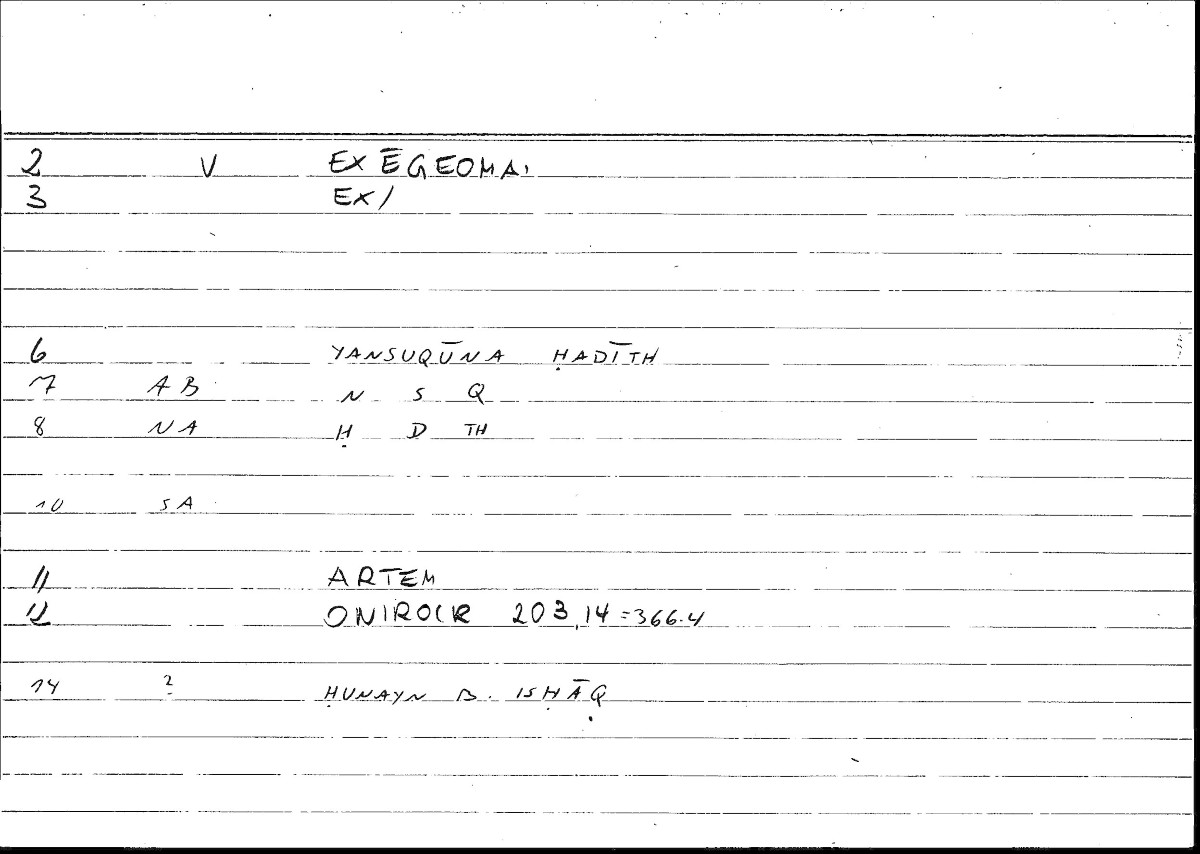 2 V EXĒGEOMAI
3 EX/
6 YANSUQŪNA ḤADĪTH
7 AB N S Q
8 NA Ḥ D TH
10 SA
11 ARTEM
12 ONIROCR 203,14=366.4
14 2 ḤUNAYN B. ISḤĀQ